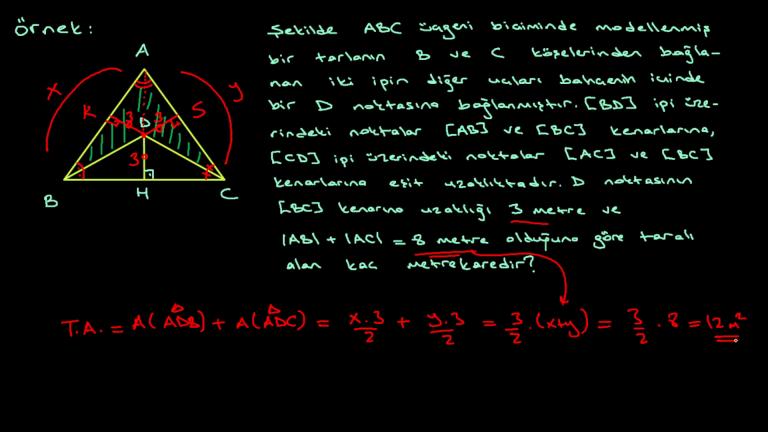 Örnek:
Şekilde ABC üçgeni biçiminde modellenmiş
bir tarlanın B ve C köşelerinden bağla-
nan iki ipin diğer uçları bahçenin içinde
bir D noktasına bağlanmıştır. [BD] ipi üze-
rindeki noktalar [AB] ve [BC] kenarlarına,
[CD] ipi üzerindeki noktalar [AC] ve [BC]
kenarlarına eşit uzaklıktadır. D noktasının
[BC] kenarına uzaklığı 3 metre ve
|AB| + |AC| = 8 metre olduğuna göre taralı
alan kaç metrekaredir?
A
x
y
K
S
D
3
3
3
B
H
C
T.A. = A(ADB) + A(ADC) = x.3/2 + y.3/2 = 3/2 . (x+y) = 3/2 . 8 = 12 m²